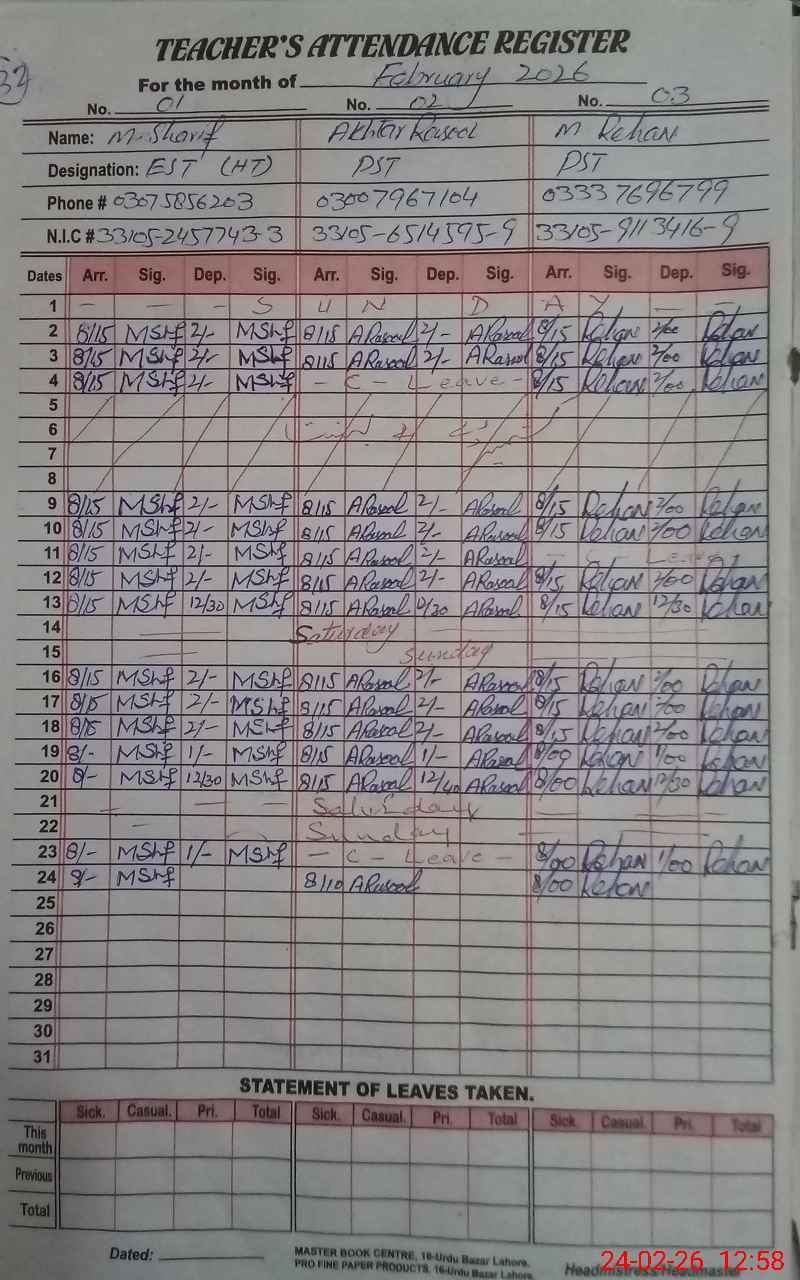 32
TEACHER'S ATTENDANCE REGISTER
For the month of February 2026
No. 01 No. 02 No. 03
Name: M. Sharif Akhtar Rasool M Rehan
Designation: EST (HT) PST PST
Phone # 03075856203 03007967104 03337696799
N.I.C # 33105-2457743-3 33105-6514595-9 33105-9113416-9
Dates Arr. Sig. Dep. Sig. Arr. Sig. Dep. Sig. Arr. Sig. Dep. Sig.
1 — — S U N D A Y — —
2 8/15 MShf 2/- MShf 8/15 ARasool 2/- ARasool 8/15 Rehan 2/00 Rehan
3 8/15 MShf 2/- MShf 8/15 ARasool 2/- ARasool 8/15 Rehan 2/00 Rehan
4 8/15 MShf 2/- MShf - C - Leave - 8/15 Rehan 2/00 Rehan
5
6
7
8
9 8/15 MShf 2/- MShf 8/15 ARasool 2/- ARasool 8/15 Rehan 2/00 Rehan
10 8/15 MShf 2/- MShf 8/15 ARasool 2/- ARasool 8/15 Rehan 2/00 Rehan
11 8/15 MShf 2/- MShf 8/15 ARasool 2/- ARasool - C - Leave
12 8/15 MShf 2/- MShf 8/15 ARasool 2/- ARasool 8/15 Rehan 2/00 Rehan
13 8/15 MShf 12/30 MShf 8/15 ARasool ARasool 8/15 Rehan 12/30 Rehan
14 Saturday
15 Sunday
16 8/15 MShf 2/- MShf 8/15 ARasool 2/- ARasool 8/15 Rehan 2/00 Rehan
17 8/15 MShf 2/- MShf 8/15 ARasool 2/- ARasool 8/15 Rehan 2/00 Rehan
18 8/15 MShf 2/- MShf 8/15 ARasool 2/- ARasool 8/15 Rehan 2/00 Rehan
19 8/- MShf 1/- MShf 8/15 ARasool 1/- ARasool 8/00 Rehan 1/00 Rehan
20 8/- MShf 12/30 MShf 8/15 ARasool 12/40 ARasool 8/00 Rehan 12/30 Rehan
21 Saturday
22 Sunday
23 8/- MShf 1/- MShf - C - Leave - 8/00 Rehan 1/00 Rehan
24 8/- MShf 8/10 ARasool 8/00 Rehan
25
26
27
28
29
30
31
STATEMENT OF LEAVES TAKEN.
Sick. Casual. Pri. Total Sick. Casual. Pri. Total Sick. Casual. Pri. Total
This month
Previous
Total
Dated: MASTER BOOK CENTRE, 16-Urdu Bazar Lahore.
PRO FINE PAPER PRODUCTS, 16-Urdu Bazar Lahore.
Headmistress/Headmaster
24-02-26 12:58